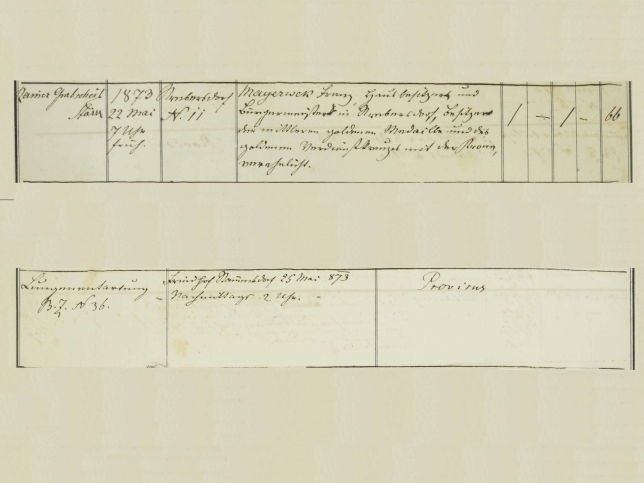 Rainer Grabscheit
Pfarrer
1873
22 Mai
7 Uhr
früh.
N. 11
Mayereck Franz, Hausbesitzer und
Bürgermeister in
der mittleren goldenen Medaille und des
goldenen Verdienstkreuzes mit der Krone,
verehelicht.
1 — 1 — 66
Lungenentartung
B. 7. N 36.
Friedhof 25 Mai 873
Nachmittags 2 Uhr.
Provicus